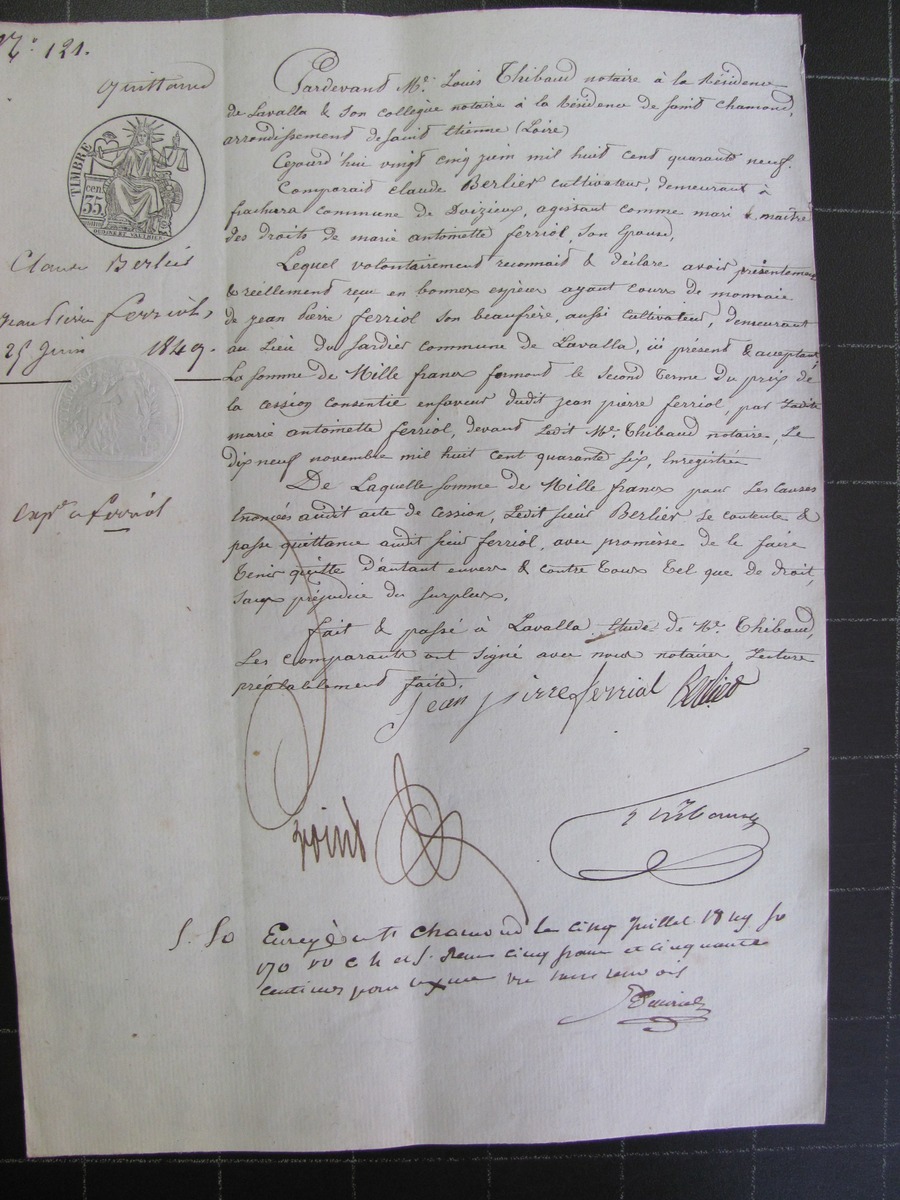 N.° 121.
quittance
TIMBRE
35 cen
Claude Berlier
Jean Pierre Ferriol,
25 Juin 1849.
exp.on a Ferriol
Pardevant Me. Louis Thibaud notaire à la Résidence
de Lavalla & son collègue notaire à la Résidence de saint chamond,
arrondissement de saint Etienne (Loire)
Cejourd'hui vingt cinq juin mil huit cent quarante neuf.
Comparait claude Berlier cultivateur, demeurant à
frachura commune de Doizieux, agissant comme mari & maître
des droits de marie antoinette ferriol, son Epouse,
Lequel volontairement reconnait & déclare avoir présentement
& réellement reçu en bonnes espèces ayant cours de monnaie
de jean pierre ferriol son beaufrère, aussi cultivateur, demeurant
au Lieu du Sardier commune de Lavalla, ici présent & acceptant,
La somme de Mille francs formant le second terme du prix de
la cession consentie enfaveur dudit jean pierre ferriol, par Ladite
marie antoinette ferriol, devant Ledit Me. Thibaud notaire, Le
dix neuf novembre mil huit cent quarante six, Enregistrée
De Laquelle somme de Mille francs pour Les causes
Enoncées audit acte de cession, Ledit sieur Berlier se contente &
passe quittance audit sieur ferriol, avec promèsse de le faire
tenir quitte d'autant envers & contre tous tel que de droit,
sans préjudice du surplus.
fait & passé à Lavalla Etude de Me. Thibaud,
Les comparants ont signé avec nous notaires Lecture
préalablement faite.
Jean pirre ferriol Berlier
Thibaud
5. 50 Enregé à St Chamond le cinq Juillet 1849 fo
170 vo c 4 et 5. Reçu cinq francs et cinquante
centimes pour dixme